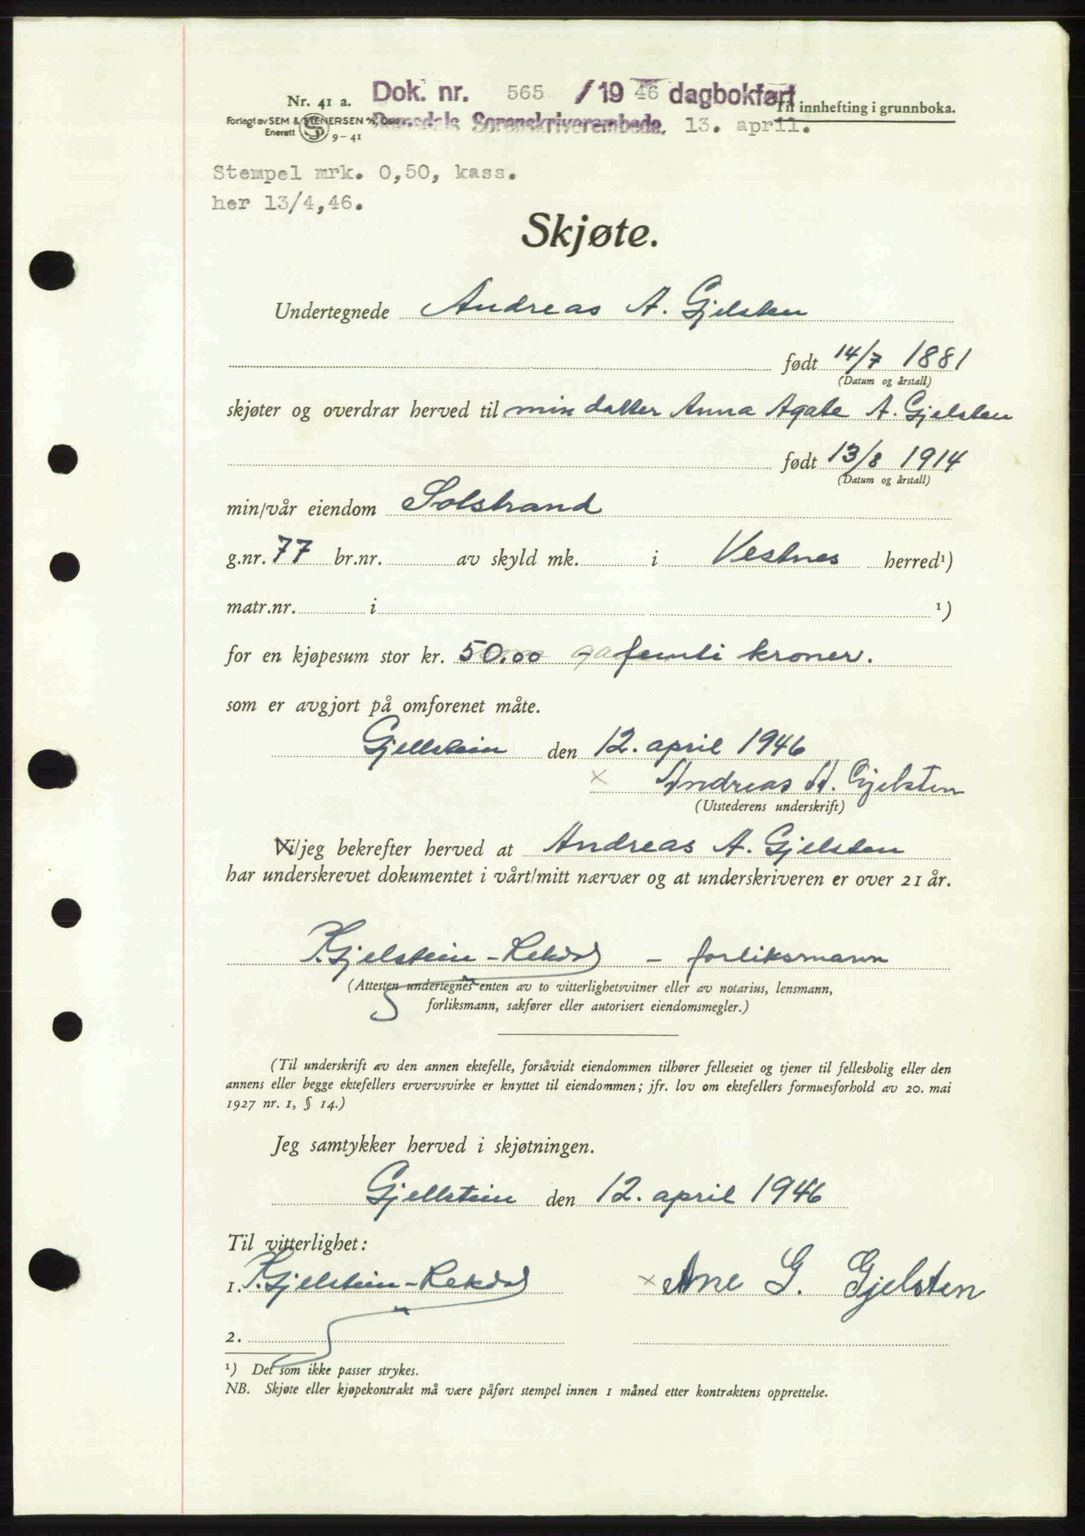 Nr. 41 a.
Dok. nr. 565 / 1946 dagbokført
Til innhefting i grunnboka.
Forlagt av SEM & STENERSEN A/S Oslo
Enerett 9-41
Romsdals Sorenskriverembede. 13. april.
Stempel mrk. 0,50, kass.
her 13/4,46.
Skjøte.
Undertegnede Andreas A. Gjelsten
født 14/7 1881
(Datum og årstall)
skjøter og overdrar herved til min datter Anna Agate A. Gjelsten
født 13/8 1914
(Datum og årstall)
min/vår eiendom Solstrand
g.nr. 77 br.nr. av skyld mk. i Vestnes herred¹)
matr.nr. i ¹)
for en kjøpesum stor kr. 50.00 femti kroner.
som er avgjort på omforenet måte.
Gjellstein den 12. april 1946
x Andreas A. Gjelsten
(Utstederens underskrift)
Vi/jeg bekrefter herved at Andreas A. Gjelsten
har underskrevet dokumentet i vårt/mitt nærvær og at underskriveren er over 21 år.
P. Gjelstein-Rekdal – forliksmann
(Attesten undertegnes enten av to vitterlighetsvitner eller av notarius, lensmann,
forliksmann, sakfører eller autorisert eiendomsmegler.)
(Til underskrift av den annen ektefelle, forsåvidt eiendommen tilhører felleseiet og tjener til fellesbolig eller den
annens eller begge ektefellers ervervsvirke er knyttet til eiendommen; jfr. lov om ektefellers formuesforhold av 20. mai
1927 nr. 1, § 14.)
Jeg samtykker herved i skjøtningen.
Gjellstein den 12. april 1946
Til vitterlighet:
1. P. Gjelstein-Rekdal x Ane G. Gjelsten
2.
¹) Det som ikke passer strykes.
NB. Skjøte eller kjøpekontrakt må være påført stempel innen 1 måned etter kontraktens opprettelse.